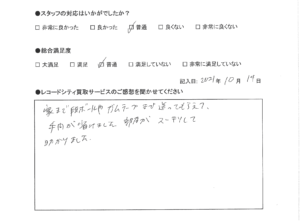 ●スタッフの対応はいかがでしたか？
□ 非常に良かった □ 良かった ☑ 普通 □ 良くない □ 非常に良くない
●総合満足度
□ 大満足 □ 満足 ☑ 普通 □ 満足していない □ 非常に満足していない
記入日: 2021 年 10 月 14 日
●レコードシティ買取サービスのご感想を聞かせてください
家まで段ボールやガムテープまで送ってもらえて、
手間が省けました。 がスーデリして
助かりました。